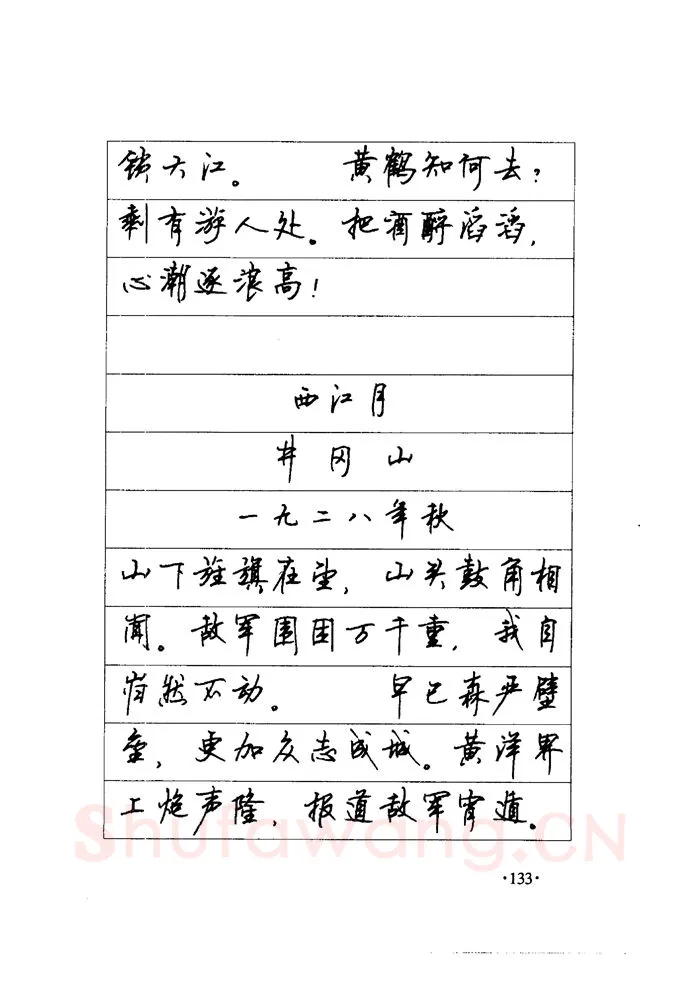 锁大江。 黄鹤知何去?
剩有游人处。把酒酹滔滔,
心潮逐浪高!
西江月
井冈山
一九二八年秋
山下旌旗在望, 山头鼓角相
闻。敌军围困万千重, 我自
岿然不动。 早已森严壁
垒, 更加众志成城。黄洋界
上炮声隆, 报道敌军宵遁。
Shufawang.CN
·133·